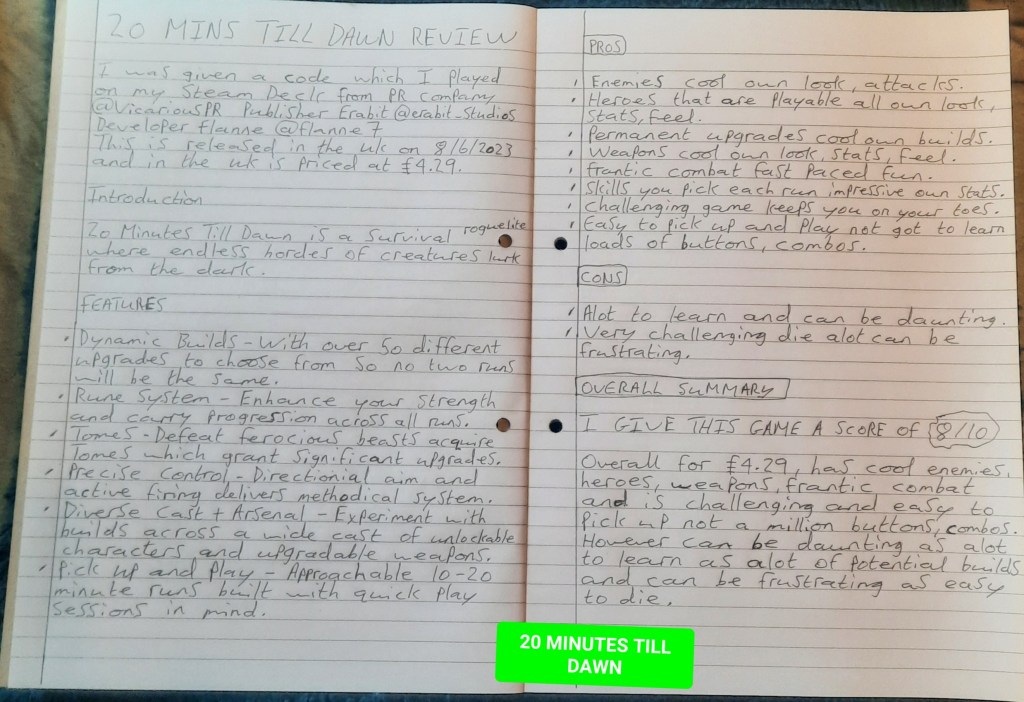 20 MINS TILL DAWN REVIEW
I was given a code which I played
on my Steam Deck from PR company
@VicariousPR Publisher Erabit @erabit_Studios
Developer flanne @flanne7
This is released in the uk on 8/6/2023
and in the uk is priced at £4.29.
Introduction
20 Minutes Till Dawn is a Survival roguelite
where endless hordes of creatures lurk
from the dark.
FEATURES
• Dynamic Builds - With over 50 different
upgrades to choose from so no two runs
will be the same.
• Rune System - Enhance your Strength
and carry progression across all runs.
• Tomes - Defeat ferocious beasts acquire
Tomes which grant significant upgrades.
• Precise Control - Directionial aim and
active firing delivers methodical system.
• Diverse Cast + Arsenal - Experiment with
builds across a wide cast of unlockable
characters and upgradable weapons.
• Pick up and Play - Approachable 10-20
minute runs built with quick play
sessions in mind.
PROS
• Enemies cool own look, attacks.
• Heroes that are playable all own look,
stats, feel.
• Permanent upgrades cool own builds.
• Weapons cool own look, stats, feel.
• frantic combat fast paced fun.
• Skills you pick each run impressive own stats.
• Challenging game keeps you on your toes.
• Easy to pick up and play not got to learn
loads of buttons, combos.
CONS
• Alot to learn and can be daunting.
• Very challenging die alot can be
frustrating.
OVERALL SUMMARY
I GIVE THIS GAME A SCORE OF 8/10
Overall for £4.29, has cool enemies,
heroes, weapons, frantic combat
and is challenging and easy to
Pick up not a million buttons, combos.
However can be daunting as alot
to learn as alot of potential builds
and can be frustrating as easy
to die.
20 MINUTES TILL
DAWN